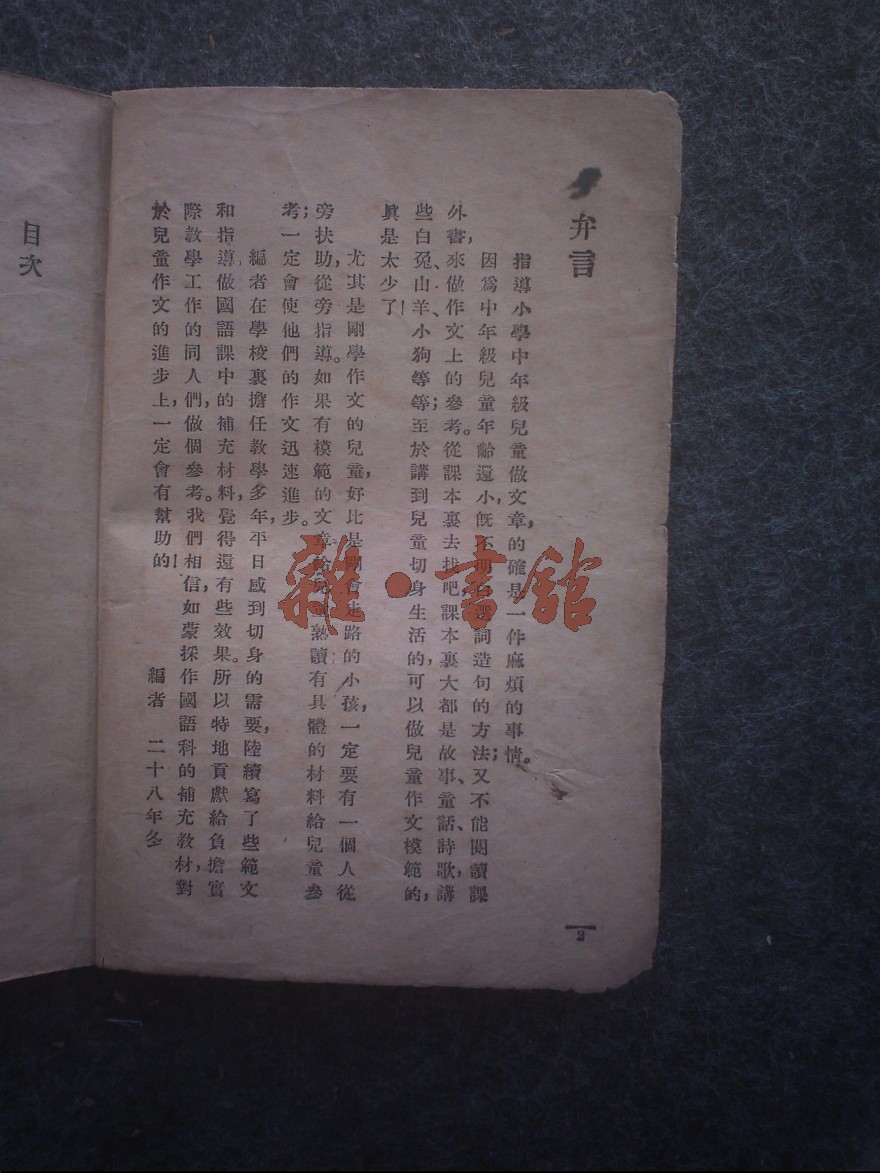 弁言
指導小學中年級兒童做文章,的確是一件麻煩的事情。
因爲中年級兒童年齡還小,旣不明白選詞造句的方法;又不能閱讀課
外書,來做作文上的參考。從課本裏去找吧,課本裏大都是故事、童話、詩歌,講
些白兔、山羊、小狗等等;至於講到兒童切身生活的,可以做兒童作文模範的,
眞是太少了!
尤其是剛學作文的兒童,好比是剛會走路的小孩,一定要有一個人從
旁扶助,從旁指導。如果有模範的文章給兒童熟讀,有具體的材料給兒童參
考;一定會使他們的作文迅速進步。
編者在學校裏擔任教學多年,平日感到切身的需要,陸續寫了些範文
和指導做國語課中的補充材料,覺得還有些效果。所以特地貢獻給負擔實
際教學工作的同人們,做個參考。我們相信,如蒙採作國語科的補充教材,對
於兒童作文的進步上,一定會有幫助的!
編者 二十八年冬
2
目次
雜·書館